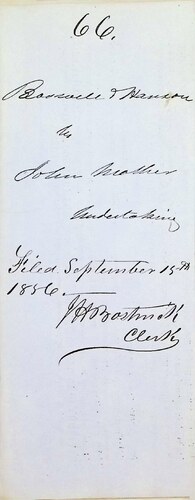 66.
Boswell & Hanson
vs
John Mather
Undertaking
Filed September 15th
1856.
J H Bostwick
Clerk